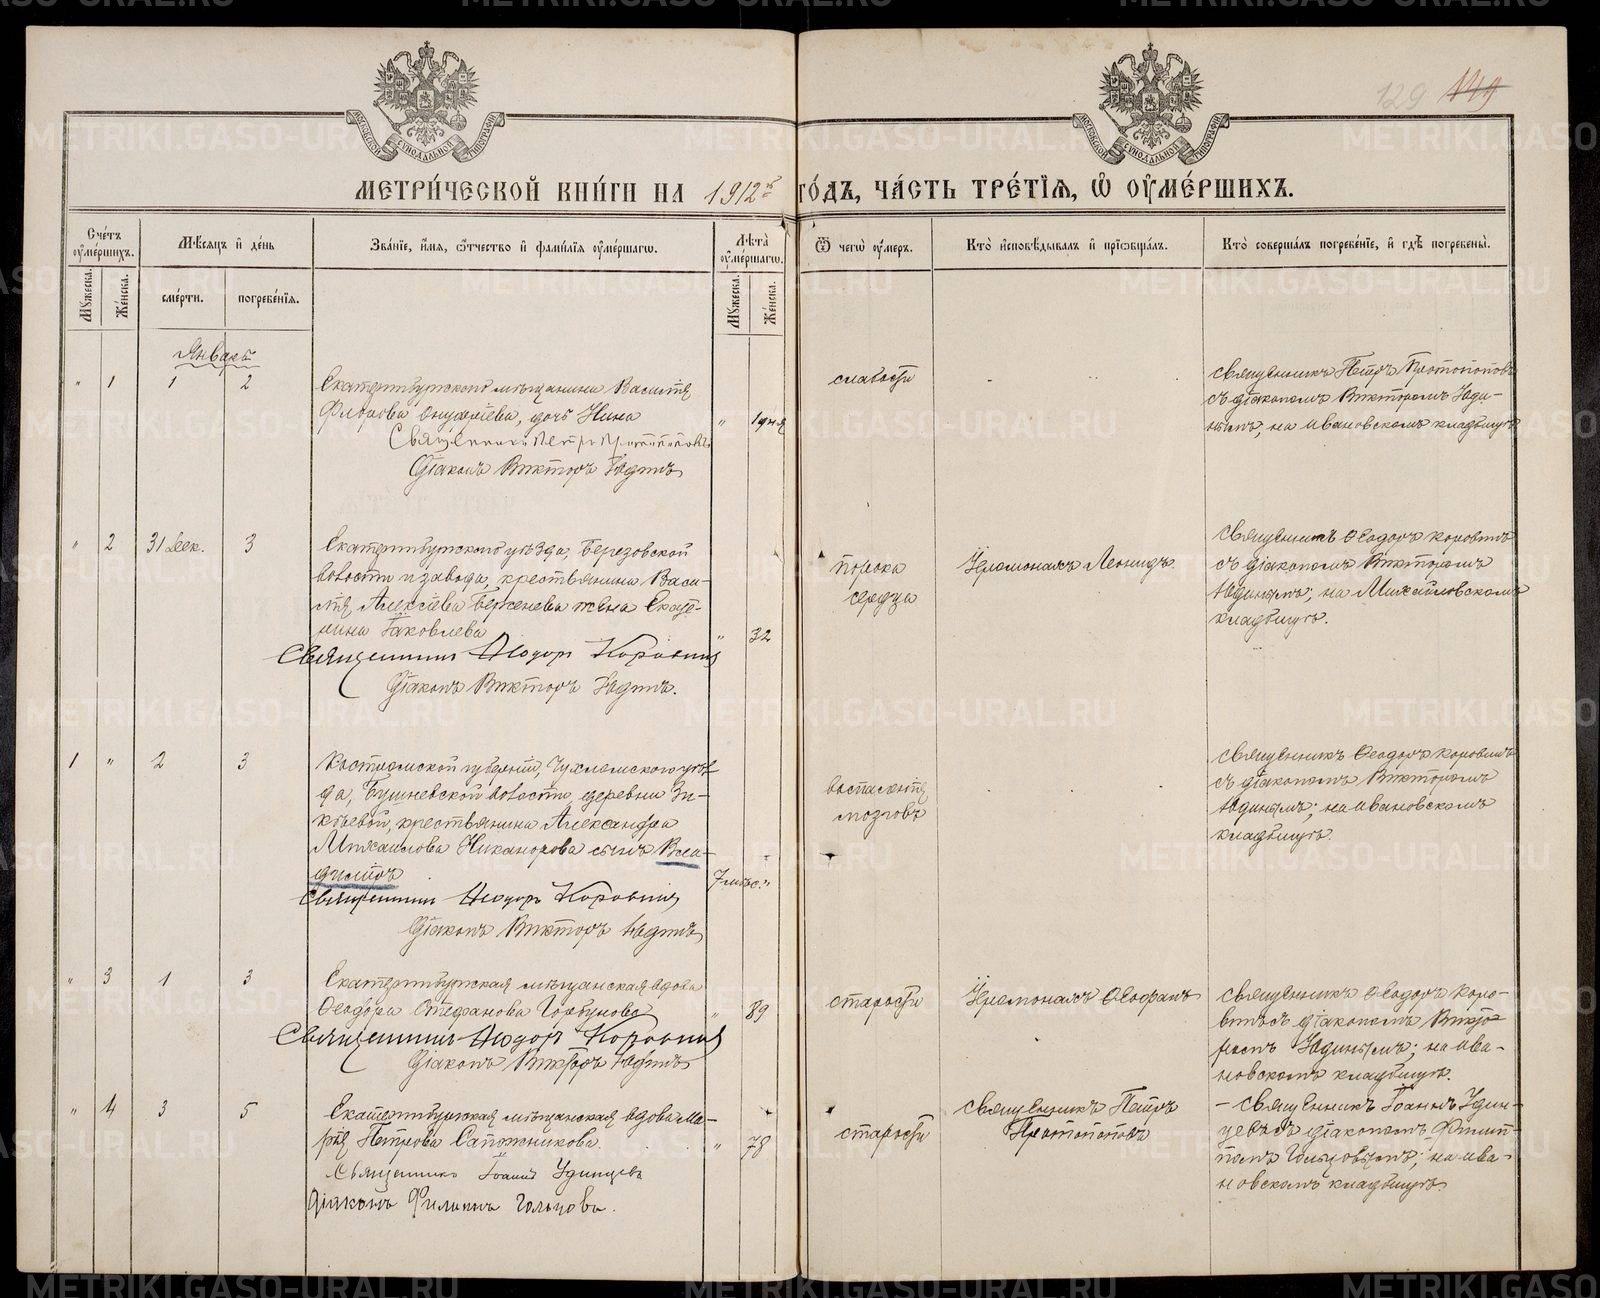 129 149
МЕТРИ́ЧЕСКОЙ КНИ́ГИ НА 1912й ГО́ДЪ, ЧА́СТЬ ТРЕ́ТІѦ, Ѽ ОУМЕ́РШИХЪ.
Сче́тъ оуме́ршихъ.
Мꙋжеска.
Же́нска.
Мѣсѧцъ и де́нь
сме́рти.
погребе́нїѧ.
Зва́нїе, и́мѧ, ѻ҆́тчество и фами́лїѧ оуме́ршагѡ.
Лѣта̀ оуме́ршагѡ.
Мꙋжеска.
Же́нска.
Ѿ чегѡ̀ оу́меръ.
Кто̀ и҆сповѣ́дывалъ и прїѡбща́лъ.
Кто̀ соверша́лъ погребе́нїе, и гдѣ̀ погребены̀.
Январь
" 1 1 2
Екатеринбургскаго мѣщанина Василія
Флорова Онуфріева, дочь Нина
" 1 дня
Священникъ Петръ Протопоповъ
Діаконъ Викторъ Юдинъ
слабости
священникъ Петръ Протопоповъ
съ діакономъ Викторомъ Юди-
нымъ; на Ивановскомъ кладбищѣ
" 2 31 Дек. 3
Екатеринбургскаго уѣзда, Березовской
волости и завода, крестьянина Васи-
лія Алексѣева Берсенева жена Екате-
рина Іаковлева
" 32
Священникъ Ѳеодоръ Коровинъ
Діаконъ Викторъ Юдинъ.
порока
сердца
Іеромонахъ Леонидъ.
священникъ Ѳеодоръ Коровинъ
съ діакономъ Викторомъ
Юдинымъ; на Михайловскомъ
кладбищѣ.
1 " 2 3
Костромской губерніи, Чухломскаго уѣз-
да, Бушневской волости деревни
крестьянина Александра
Михаилова Никанорова сынъ Вла-
диміръ
7 мѣс. "
Священникъ Ѳеодоръ Коровинъ
Діаконъ Викторъ Юдинъ
воспаленія
мозговъ
священникъ Ѳеодоръ Коровинъ
съ діакономъ Викторомъ
Юдинымъ; на Ивановскомъ
кладбищѣ.
" 3 1 3
Екатеринбургская мѣщанская вдова
Ѳеодора Стефанова Горбунова
" 89
Священникъ Ѳеодоръ Коровинъ
Діаконъ Викторъ Юдинъ
старости
Іеромонахъ Ѳеофанъ
священникъ Ѳеодоръ Коро-
винъ съ діакономъ Викто-
ромъ Юдинымъ; на Ива-
новскомъ кладбищѣ.
" 4 3 5
Екатеринбургская мѣщанская вдова Ма-
рія Петрова Сапожникова
" 78
Священникъ Іоаннъ Удинцевъ
Діаконъ Филиппъ Гольцовъ.
старости
священникъ Петръ
Протопоповъ
– священникъ Іоаннъ Удин-
цевъ съ діакономъ Филип-
помъ Гольцовымъ; на Ива-
новскомъ кладбищѣ.